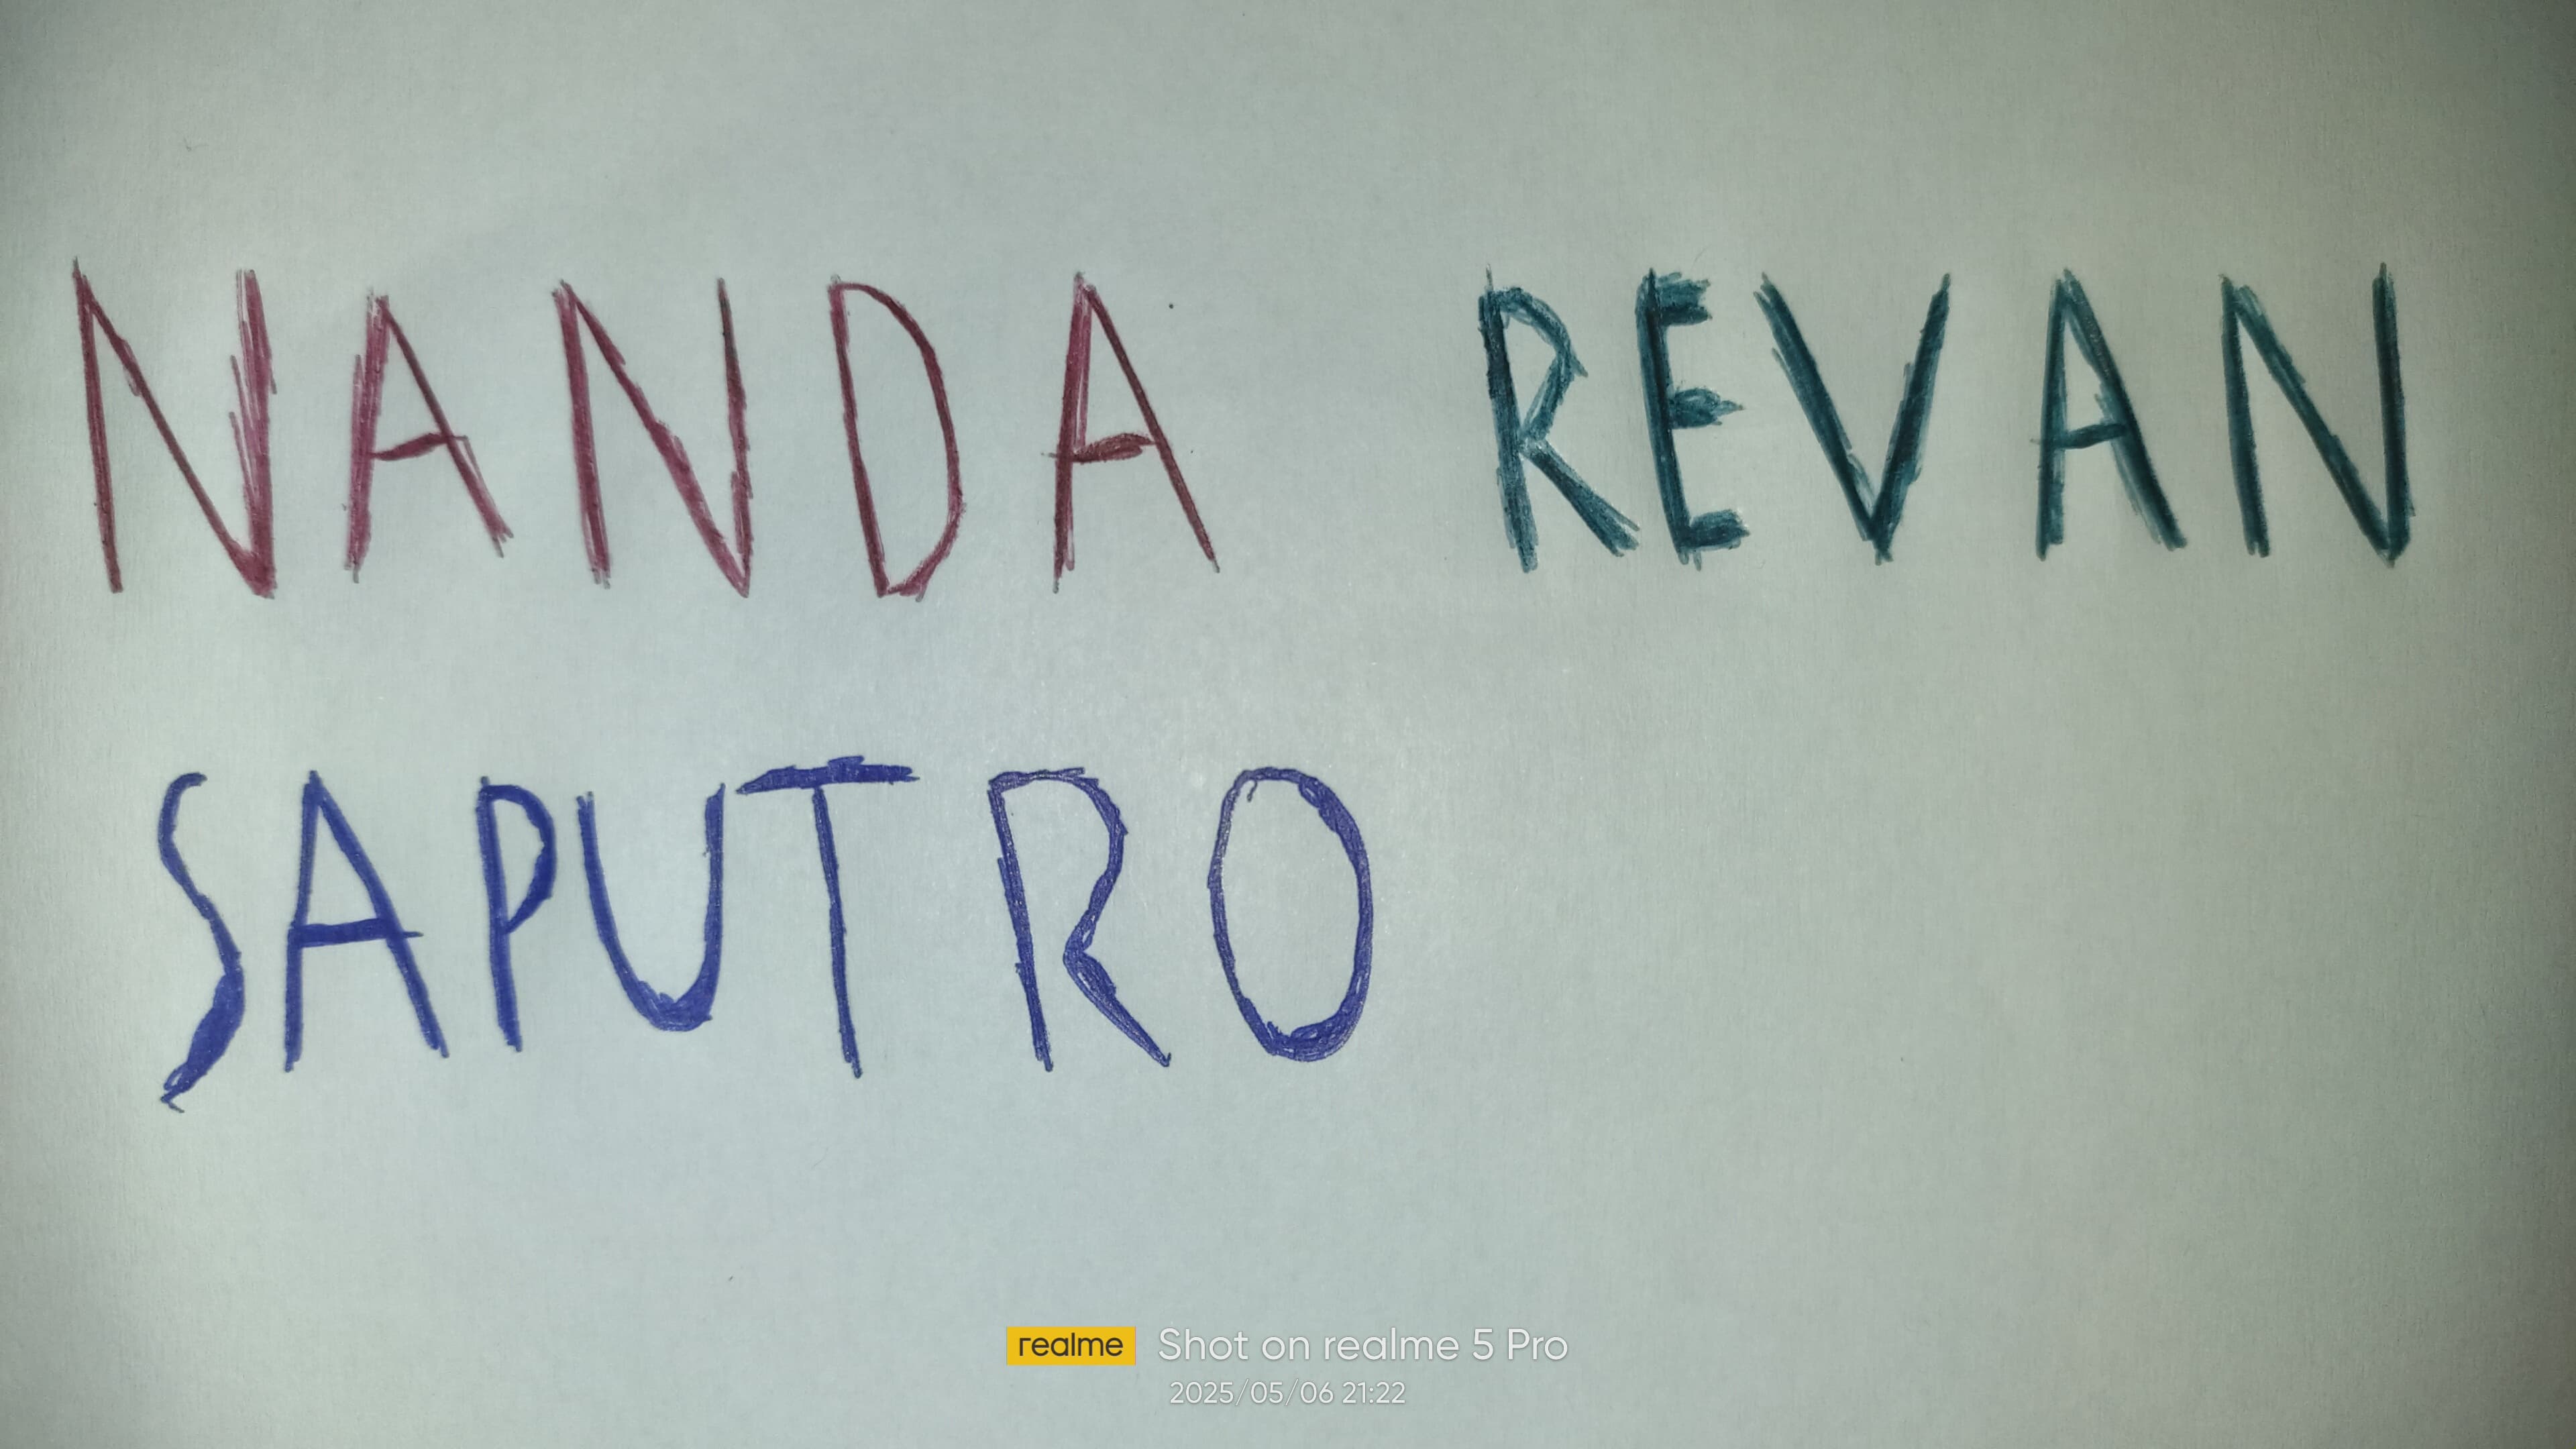 NANDA REVAN
SAPUTRO
realme Shot on realme 5 Pro
2025/05/06 21:22